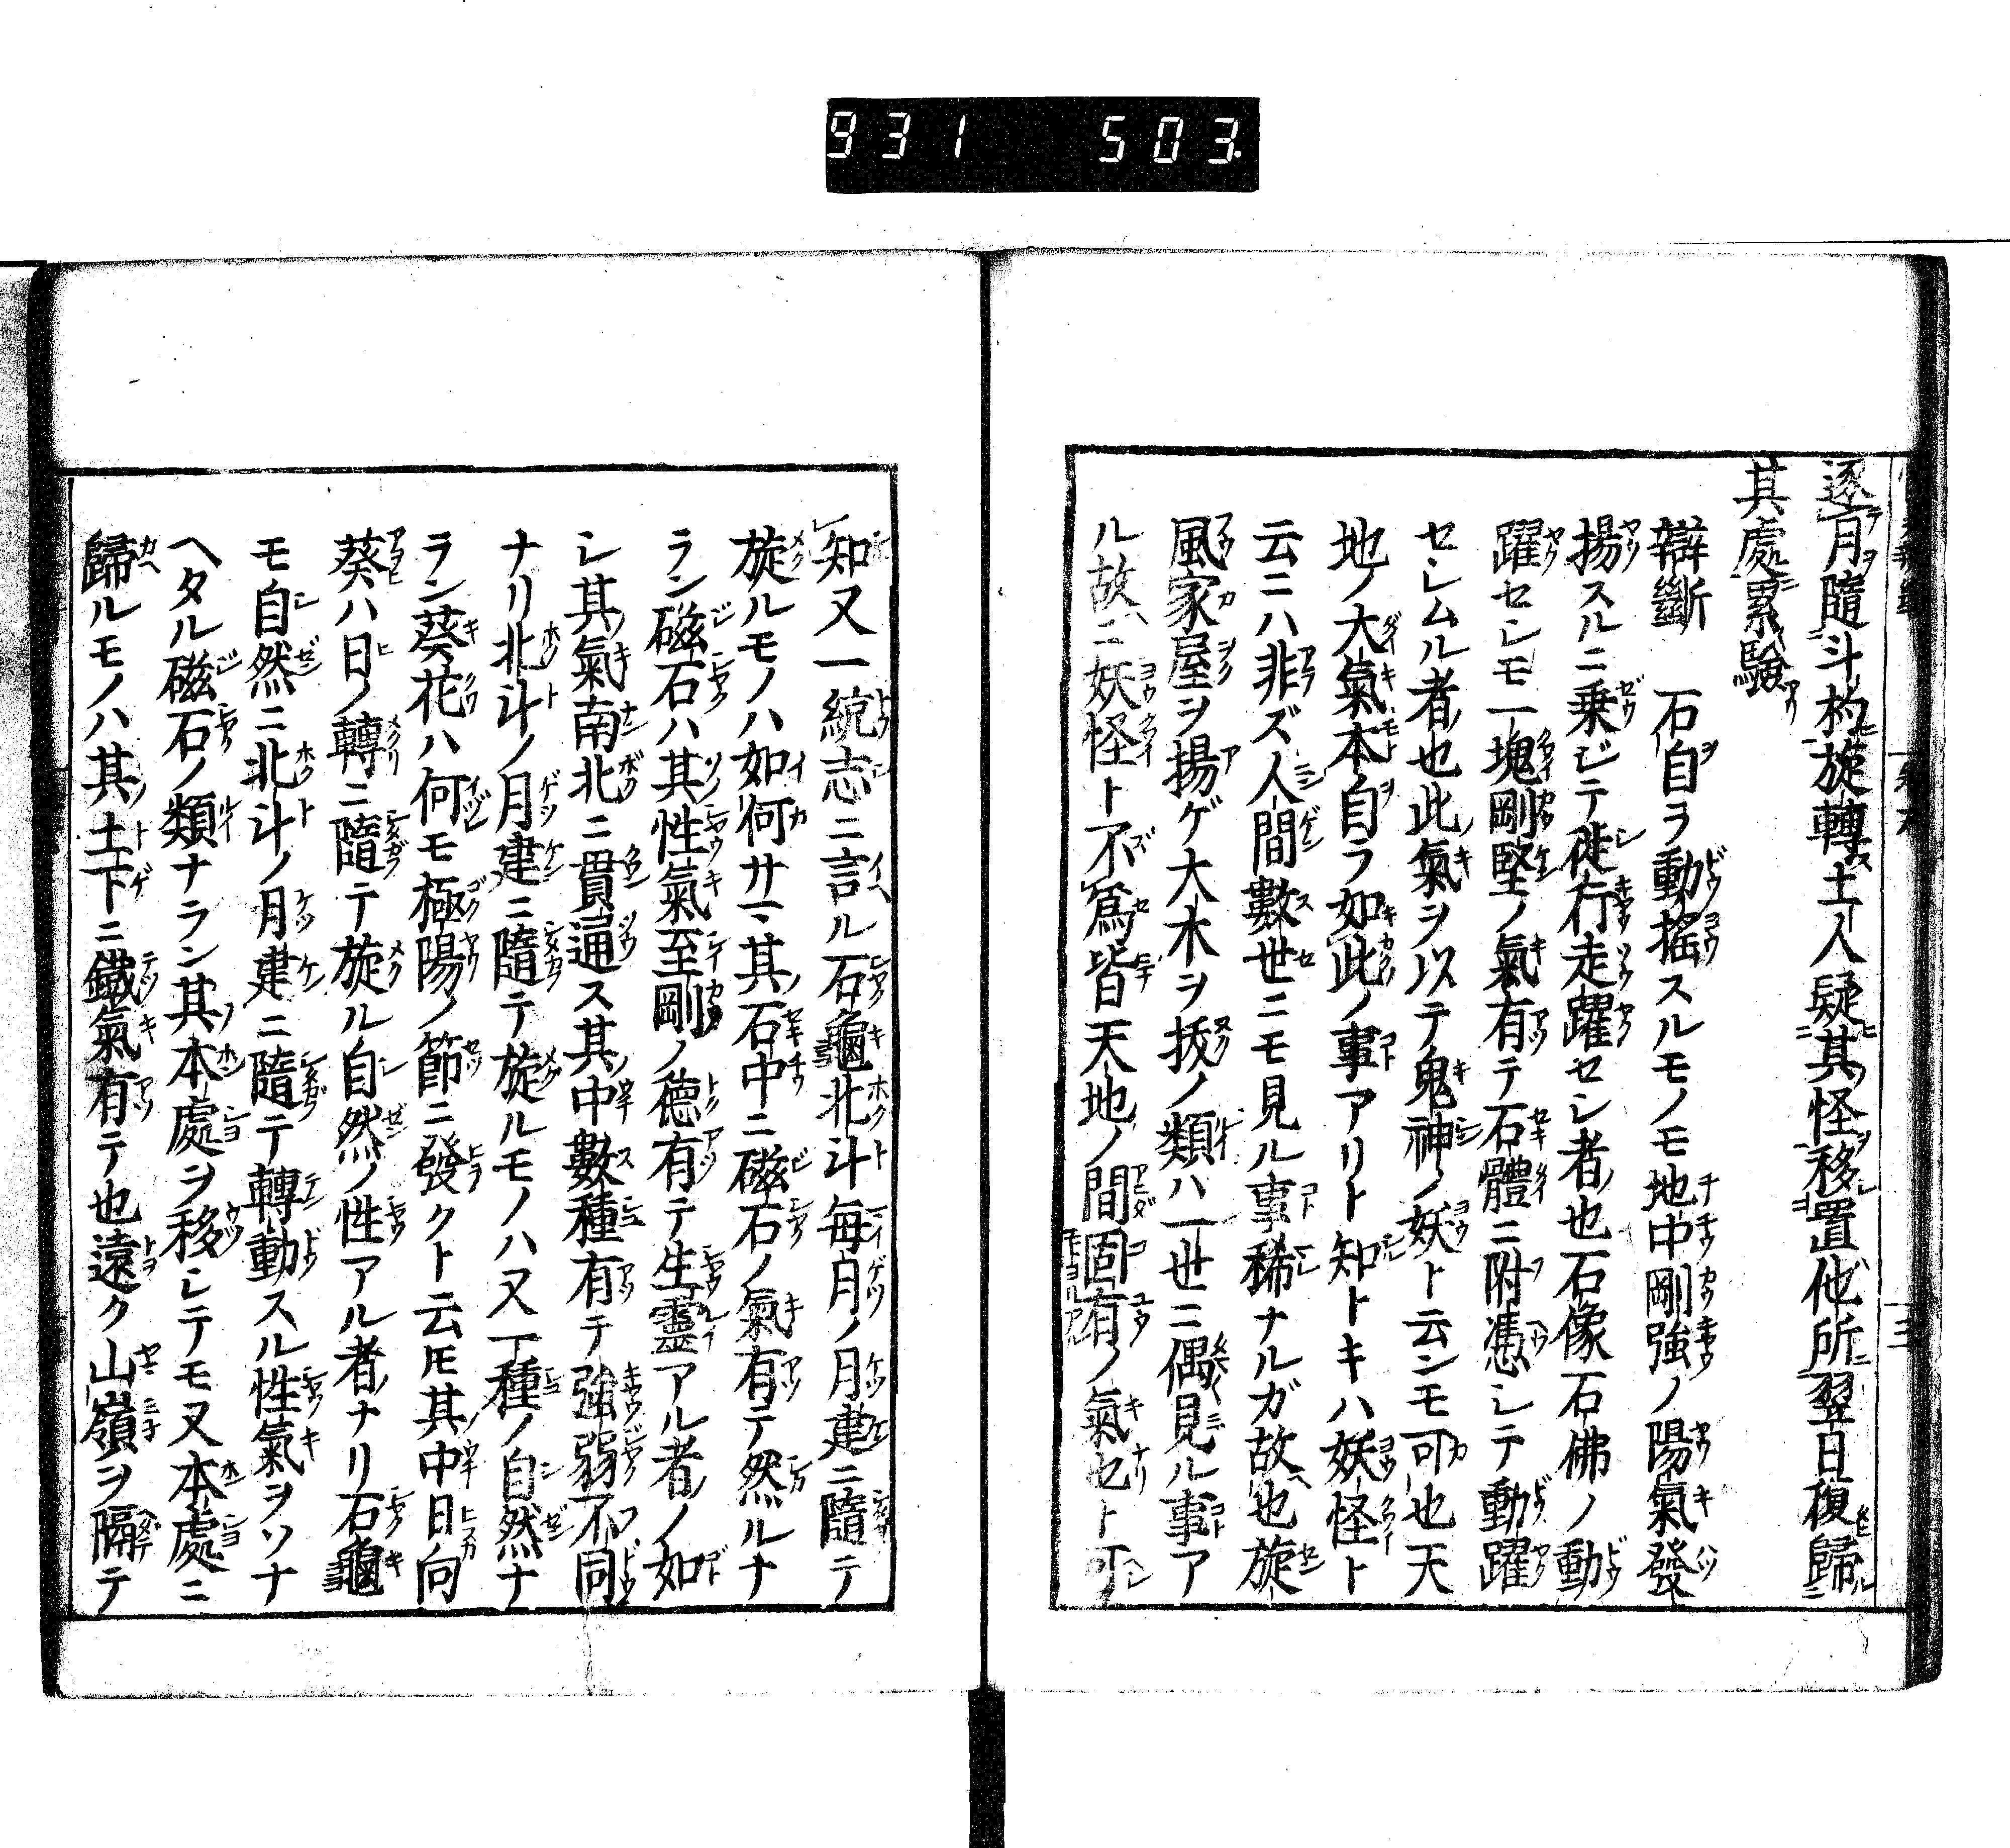 931 503
逐月隨斗杓旋轉土人疑其怪移置他所翌日復歸
其處累驗
辯斷 石自ヲ動搖スルモノモ地中剛強ノ陽氣發
揚スルニ乗ジテ徙行走躍セシ者也石像石佛ノ動
躍セシモ一塊剛堅ノ氣有テ石體ニ附憑シテ動躍
セシムル者也此氣ヲ以テ鬼神ノ妖ト云ンモ可也天
地ノ大氣本自ラ如此ノ事アリト知トキハ妖怪ト
云ニハ非ズ人間數世ニモ見ル事稀ナルガ故也旋
風家屋ヲ揚ゲ大木ヲ拔ノ類ハ一世ニ偶見ル事ア
ル故ニ妖怪ト不爲皆天地ノ間固有ノ氣也ト可
知又一統志ニ言ル石龜北斗毎月ノ月建ニ隨テ
旋ルモノハ如何サマ其石中ニ磁石ノ氣有テ然ルナ
ラン磁石ハ其性氣至剛ノ德有テ生靈アル者ノ如
シ其氣南北ニ貫通ス其中數種有テ強弱不同
ナリ北斗ノ月建ニ隨テ旋ルモノハ又一種ノ自然ナ
ラン葵花ハ何モ極陽ノ節ニ發クト云𪜈其中日向
葵ハ日ノ轉ニ隨テ旋ル自然ノ性アル者ナリ石龜
モ自然ニ北斗ノ月建ニ隨テ轉動スル性氣ヲソナ
ヘタル磁石ノ類ナラン其本處ヲ移シテモ又本處ニ
歸ルモノハ其土下ニ鐵氣有テ也遠ク山嶺ヲ隔テ